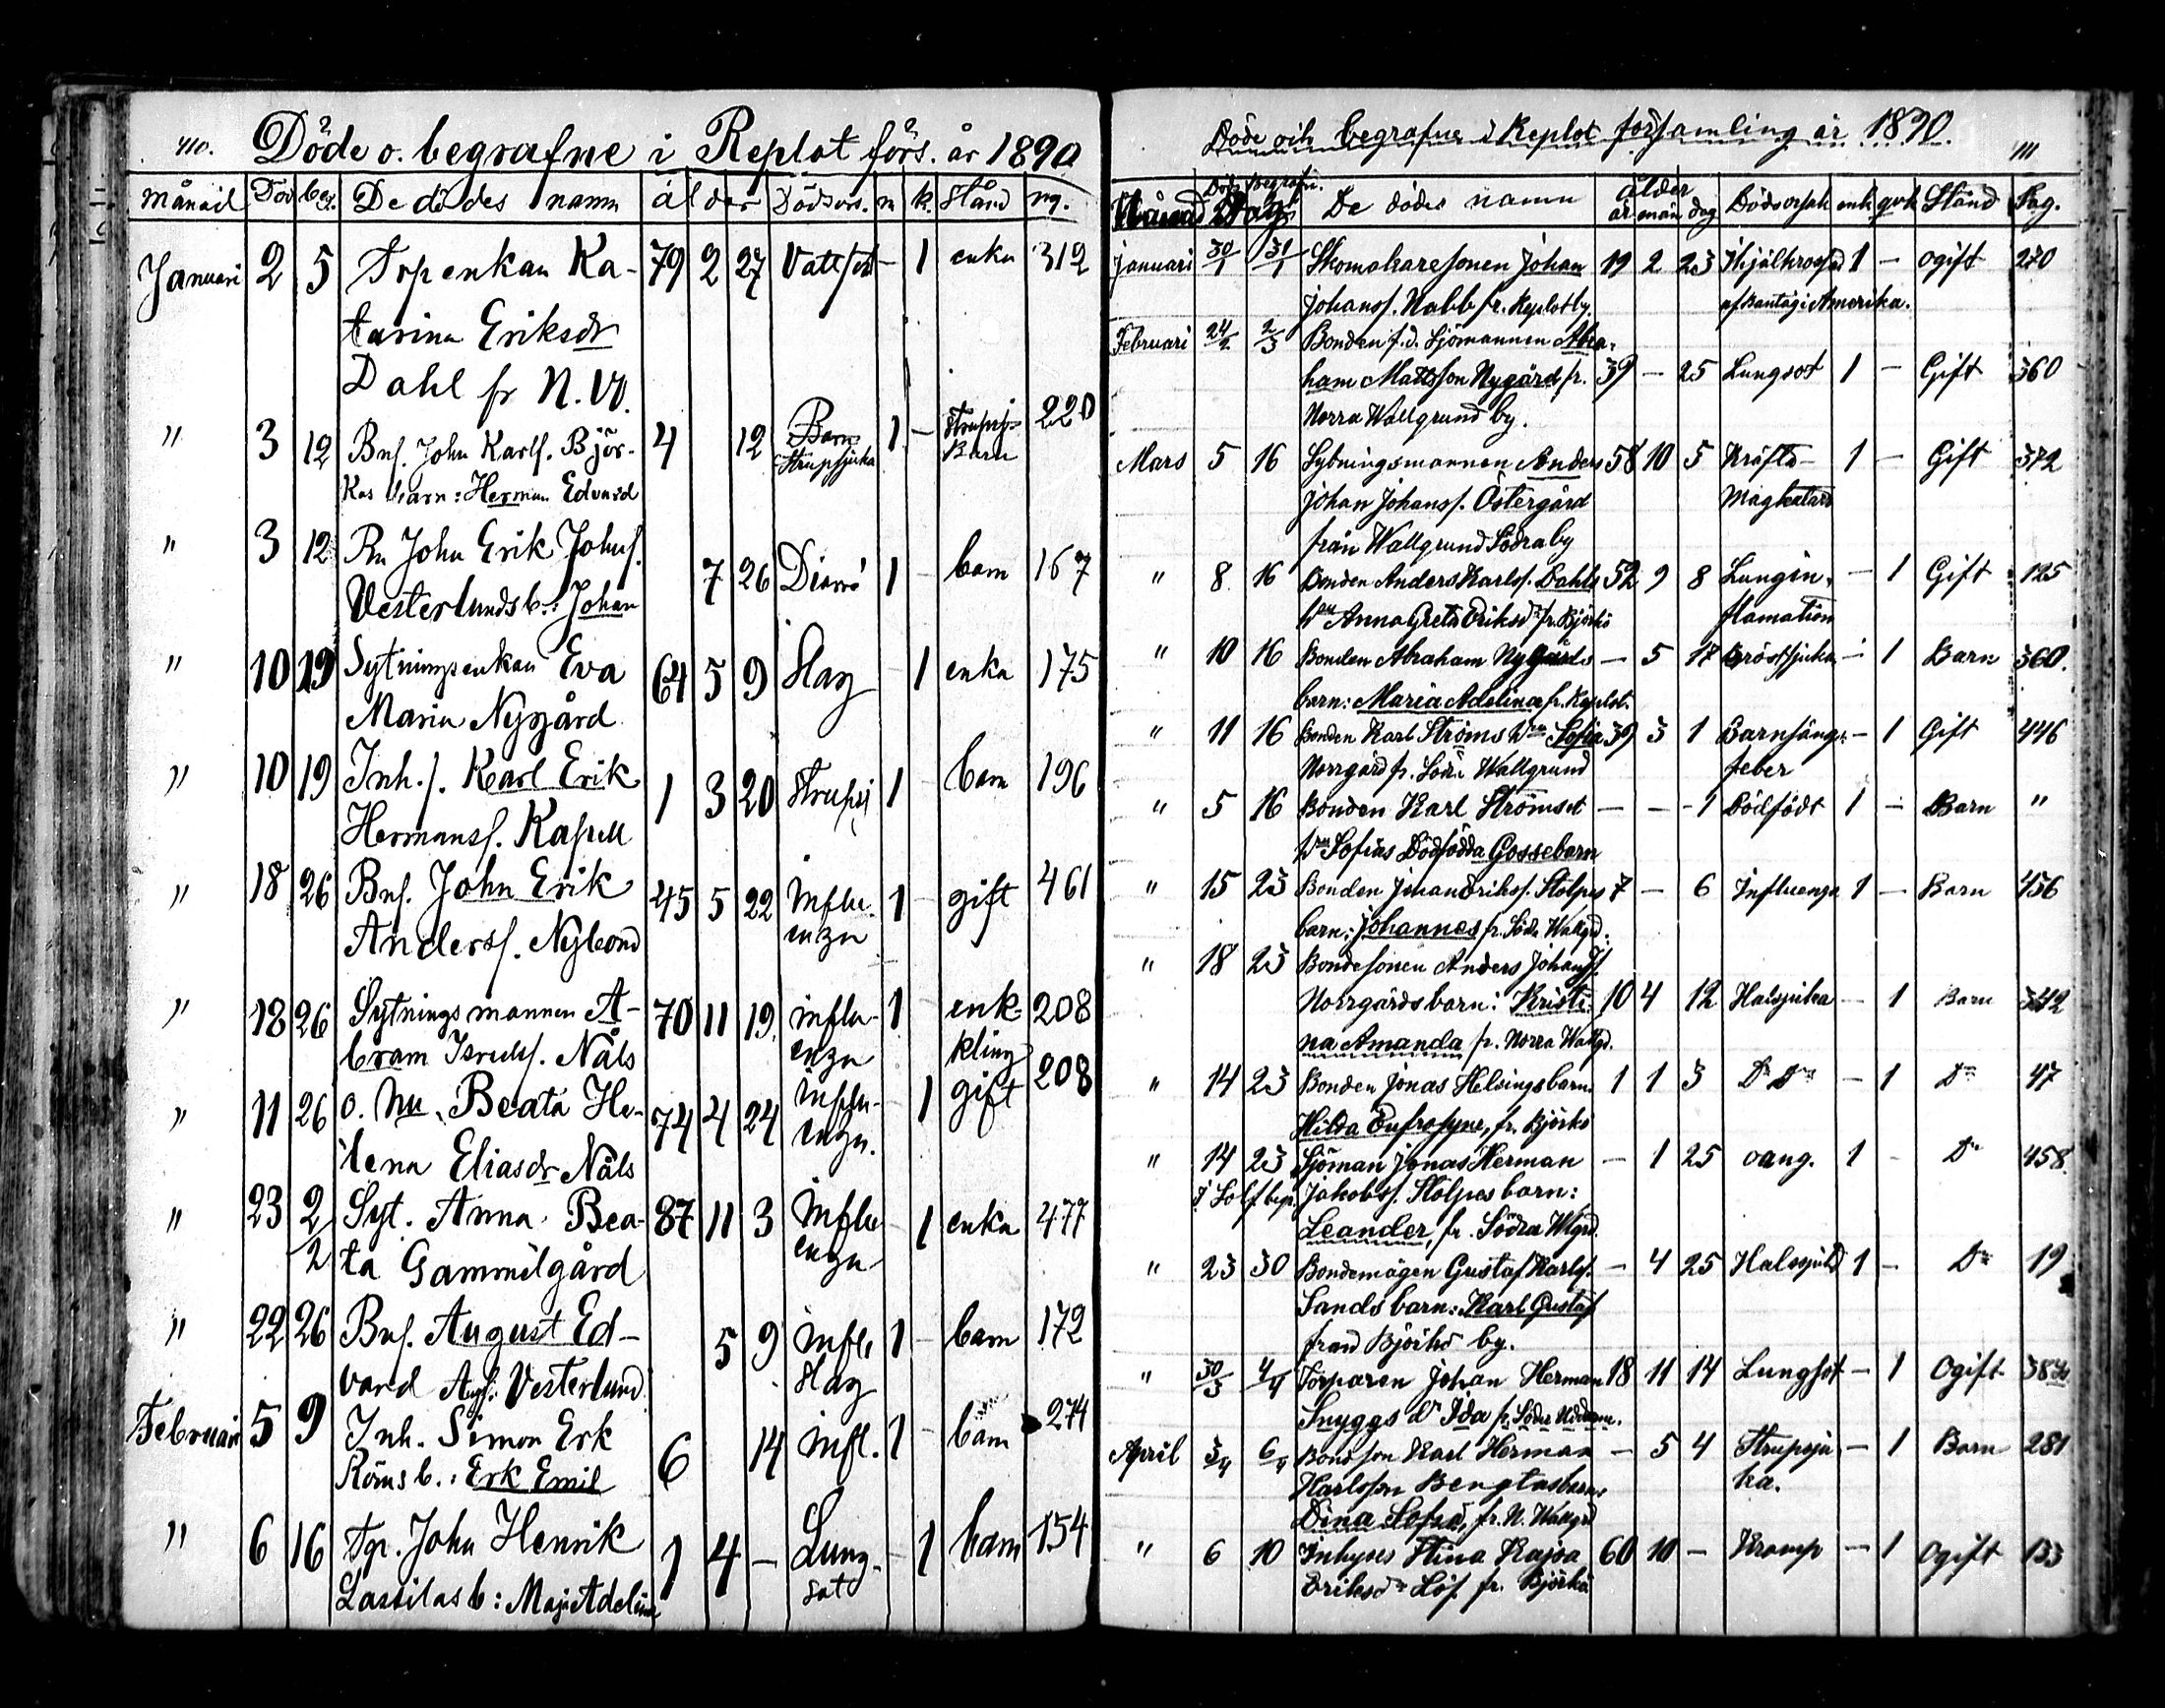 110. Döde o. begrafne i Replot förs. år 1890
Månad Död beg. De dödes namn ålder Dödsors. m k. Stånd pg.
Januari 2 5 Trpenkan Ka- 79 2 27 Vattsot - 1 enka 312
tarina Eriksdr
Dahl fr N. W.
" 3 12 Bns. John Karls. Björ- 4 12 Barn 1 - Barn 220
Strupsjuka
kas barn: Herman Edvard
" 3 12 Bn John Erik Johns. 7 26 Diarré 1 - barn 167
Vesterlunds b.: Johan
" 10 19 Sytningsenkan Eva 64 5 9 Slag 1 enka 175
Maria Nygård
" 10 19 Inh. s. Karl Erik 1 3 20 Strupsj 1 - barn 196
Hermans s. Kapell
" 18 26 Bns. John Erik 45 5 22 Influ- 1 - gift 461
Anderss. Nylund enza
" 18 26 Sytningsmannen A- 70 11 19 influ- 1 enk- 208
bram Israels. Nåls enza kling
" 11 26 o. hu. Beata He- 74 4 24 Influ- 1 gift 208
lena Eliasdr Nåls enza.
" 23 2/2 Syt. Anna Bea- 87 11 3 Influ 1 enka 477
ta Gammelgård enza
" 22 26 Bns. August Ed- 5 9 Infl. 1 - barn 172
vard Vesterlund Slag
Februari 5 9 Inh. Simon Erk 6 14 Infl. 1 barn 274
Röms b.: Erk Emil
" 6 16 Tp. John Henrik 1 4 - Lung- - 1 barn 154
Lassilas b: Maja Adelina sot
Döde och begrafne i Replot församling år 1890. 111
Månad Död Begrafn. Dag De dödes namn ålder år mån dag Dödsorsak mk qvk Stånd Pag.
Januari 30/1 31/1 Skomakaresonen Johan 19 2 23 Ihjälkrossad 1 - ogift 270
Johanss. Nabb fr. Replot by. Amerika.
Februari 24/2 2/3 Bonden f.d. Sjömannen Abra-
ham Mattsson Nygård fr. 39 - 25 Lungsot 1 - Gift 360
Norra Wallgrund by.
Mars 5 16 Sytningsmannen Anders 58 10 5 Kräfta- 1 - Gift 372
Johan Johanss. Östergård Magkatarr
från Wallgrund Södra by
" 8 16 Bonden Anders Karlss. Dahls 52 9 8 Lungin- - 1 Gift 125
Hu Anna Greta Eriksdr fr. Björkö flamation
" 10 16 Bonden Abraham Nygårds - 5 17 Bröstsjuka - 1 Barn 360.
barn: Maria Adelina fr. Replot.
" 11 16 Bonden Karl Ströms Hu Sofia 39 3 1 Barnsängs- - 1 Gift 446
Norrgård fr. Södr Wallgrund feber
" 5 16 Bonden Karl Ströms o - - -1 Dödfödt 1 - Barn "
Hu Sofias Dödfödda Gossebarn
" 15 23 Bonden Johan Erikss. Stolpes 7 - 6 Influenza 1 - Barn 456
barn: Johannes fr. Södr Wallgrd.
" 18 23 Bondesonen Anders Johanss.
Norrgårds barn: Kristi- 10 4 12 Halssjuka - 1 Barn 342
na Amanda fr. Norra Wallgd.
" 14 23 Bonden Jonas Helsings barn 1 1 3 Do Do - 1 Do 47
Hilda Eufrosyne, fr. Björkö
" 14 23 Sjöman Jonas Herman - 1 25 oang. 1 - Do 458
i Solf begr. Jakobss. Stolpes barn:
Leander, fr. Södra Wlgrd.
" 23 30 Bondemågen Gustaf Karlss. - 4 25 Halssjuka 1 - Do 19
Sands barn: Karl Gustaf
från Björkö by.
" 30/3 4/4 Torparen Johan Herman 18 11 14 Lungsot - 1 Ogift
Snyggs Dr Ida fr. Södra
April 3/4 6/4 Bondson Karl Herman - 5 4 Strupsju- - 1 Barn 281
Karlsson Bengtas barn: ka.
Dina Sofia, fr. N. Wallgrd
" 6 10 Inhyses Stina Kajsa 60 10 - Kramp - 1 Ogift 133
Eriksdr Löf fr. Björkö